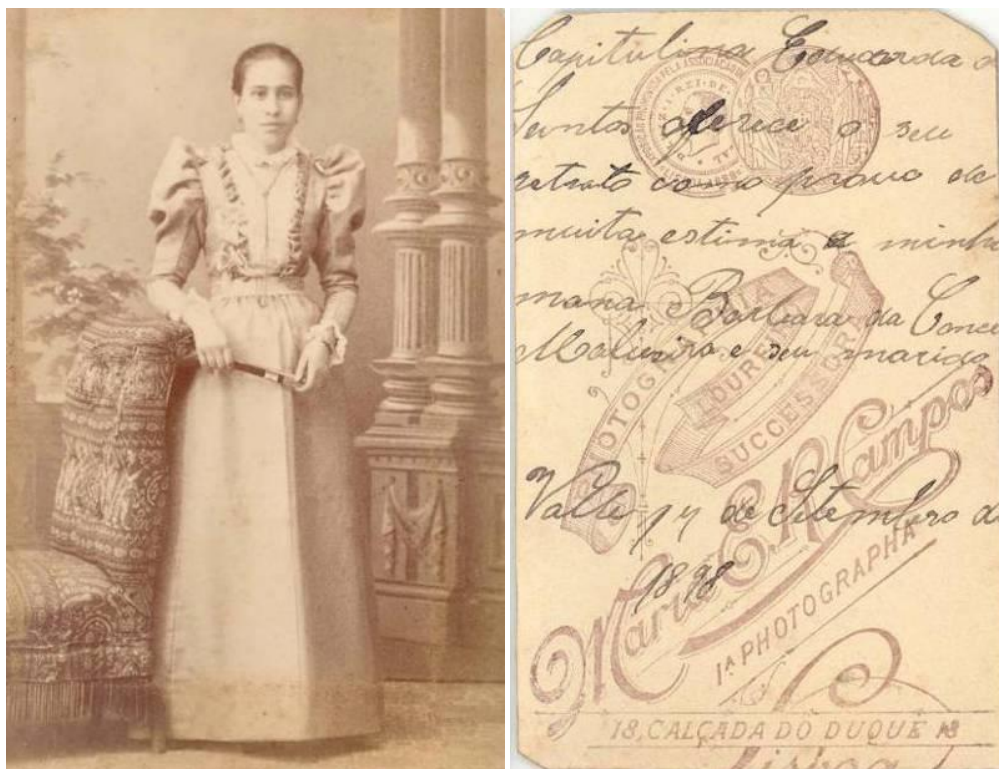 Capitulina Eduarda
Santos oferece o seu
retrato como prova de
muita estima a minh
mana Barbara da Conce
e seu marido
Valle 17 de Setembro d
1898
PHOTOGRAPHIA
LOUREI
SUCCESSORA
Maria E. R. Campos
1ª PHOTOGRAPHA
18, CALÇADA DO DUQUE 18
Lisboa